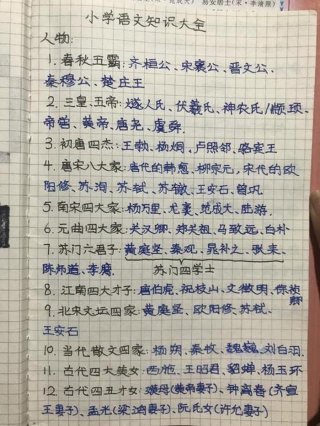 易安居士(宋·李清照)
小学语文知识大全
人物:
1.春秋五霸:齐桓公、宋襄公、晋文公、
秦穆公、楚庄王
2.三皇、五帝:燧人氏、伏羲氏、神农氏/颛顼、
帝喾、黄帝、唐尧、虞舜.
3.初唐四杰:王勃、杨炯、卢照邻、骆宾王
4.唐宋八大家:唐代的韩愈、柳宗元,宋代的欧
阳修、苏洵、苏轼、苏辙、王安石、曾巩
5.南宋四大家:杨万里、尤袤、范成大、陆游.
6.元曲四大家:关汉卿、郑光祖、马致远、白朴
7.苏门六君子:黄庭坚、秦观、晁补之、张耒、
陈师道、李廌.
苏门四学士
8.江南四大才子:唐伯虎、祝枝山、文徵明、徐祯
卿
9.北宋文坛四家:黄庭坚、欧阳修、苏轼、
王安石
10.当代散文四家:杨朔、秦牧、魏巍、刘白羽.
11.古代四大美女:西施、王昭君、貂蝉、杨玉环
12.古代四丑女:嫫母(黄帝妻子)、钟离春(齐宣
王妻子)、孟光(梁鸿妻子)、阮氏女(许允妻子)